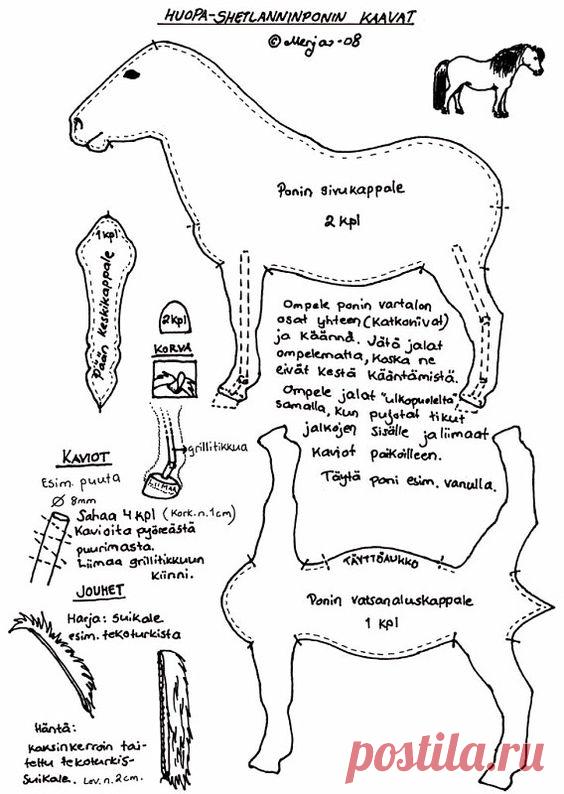 HUOPA-SHETLANNINPONIN KAAVAT
© Merja -08
Ponin sivukappale
2 kpl
1 kpl
Pään keskikappale
2 kpl
KORVA
Ompele ponin vartalon
osat yhteen (katkoviivat)
ja käännä. Jätä jalat
ompelematta, koska ne
eivät kestä kääntämistä.
Ompele jalat "ulkopuolelta"
samalla, kun pujotat tikut
jalkojen sisälle ja liimaat
kaviot paikoilleen.
Täytä poni esim. vanulla.
grillitikkua
LIIMAA
KAVIOT
Esim. puuta
Ø 8mm
Sahaa 4 kpl (kork. n. 1cm)
Kavioita pyöreästä
puurimasta.
Liimaa grillitikkuun
kiinni.
JOUHET
Harja: suikale
esim. tekoturkista
Häntä:
kaksinkerroin tai-
teltu tekoturkis-
suikale. Lev. n. 2cm.
TÄYTTÖAUKKO
Ponin vatsanaluskappale
1 kpl
postila.ru